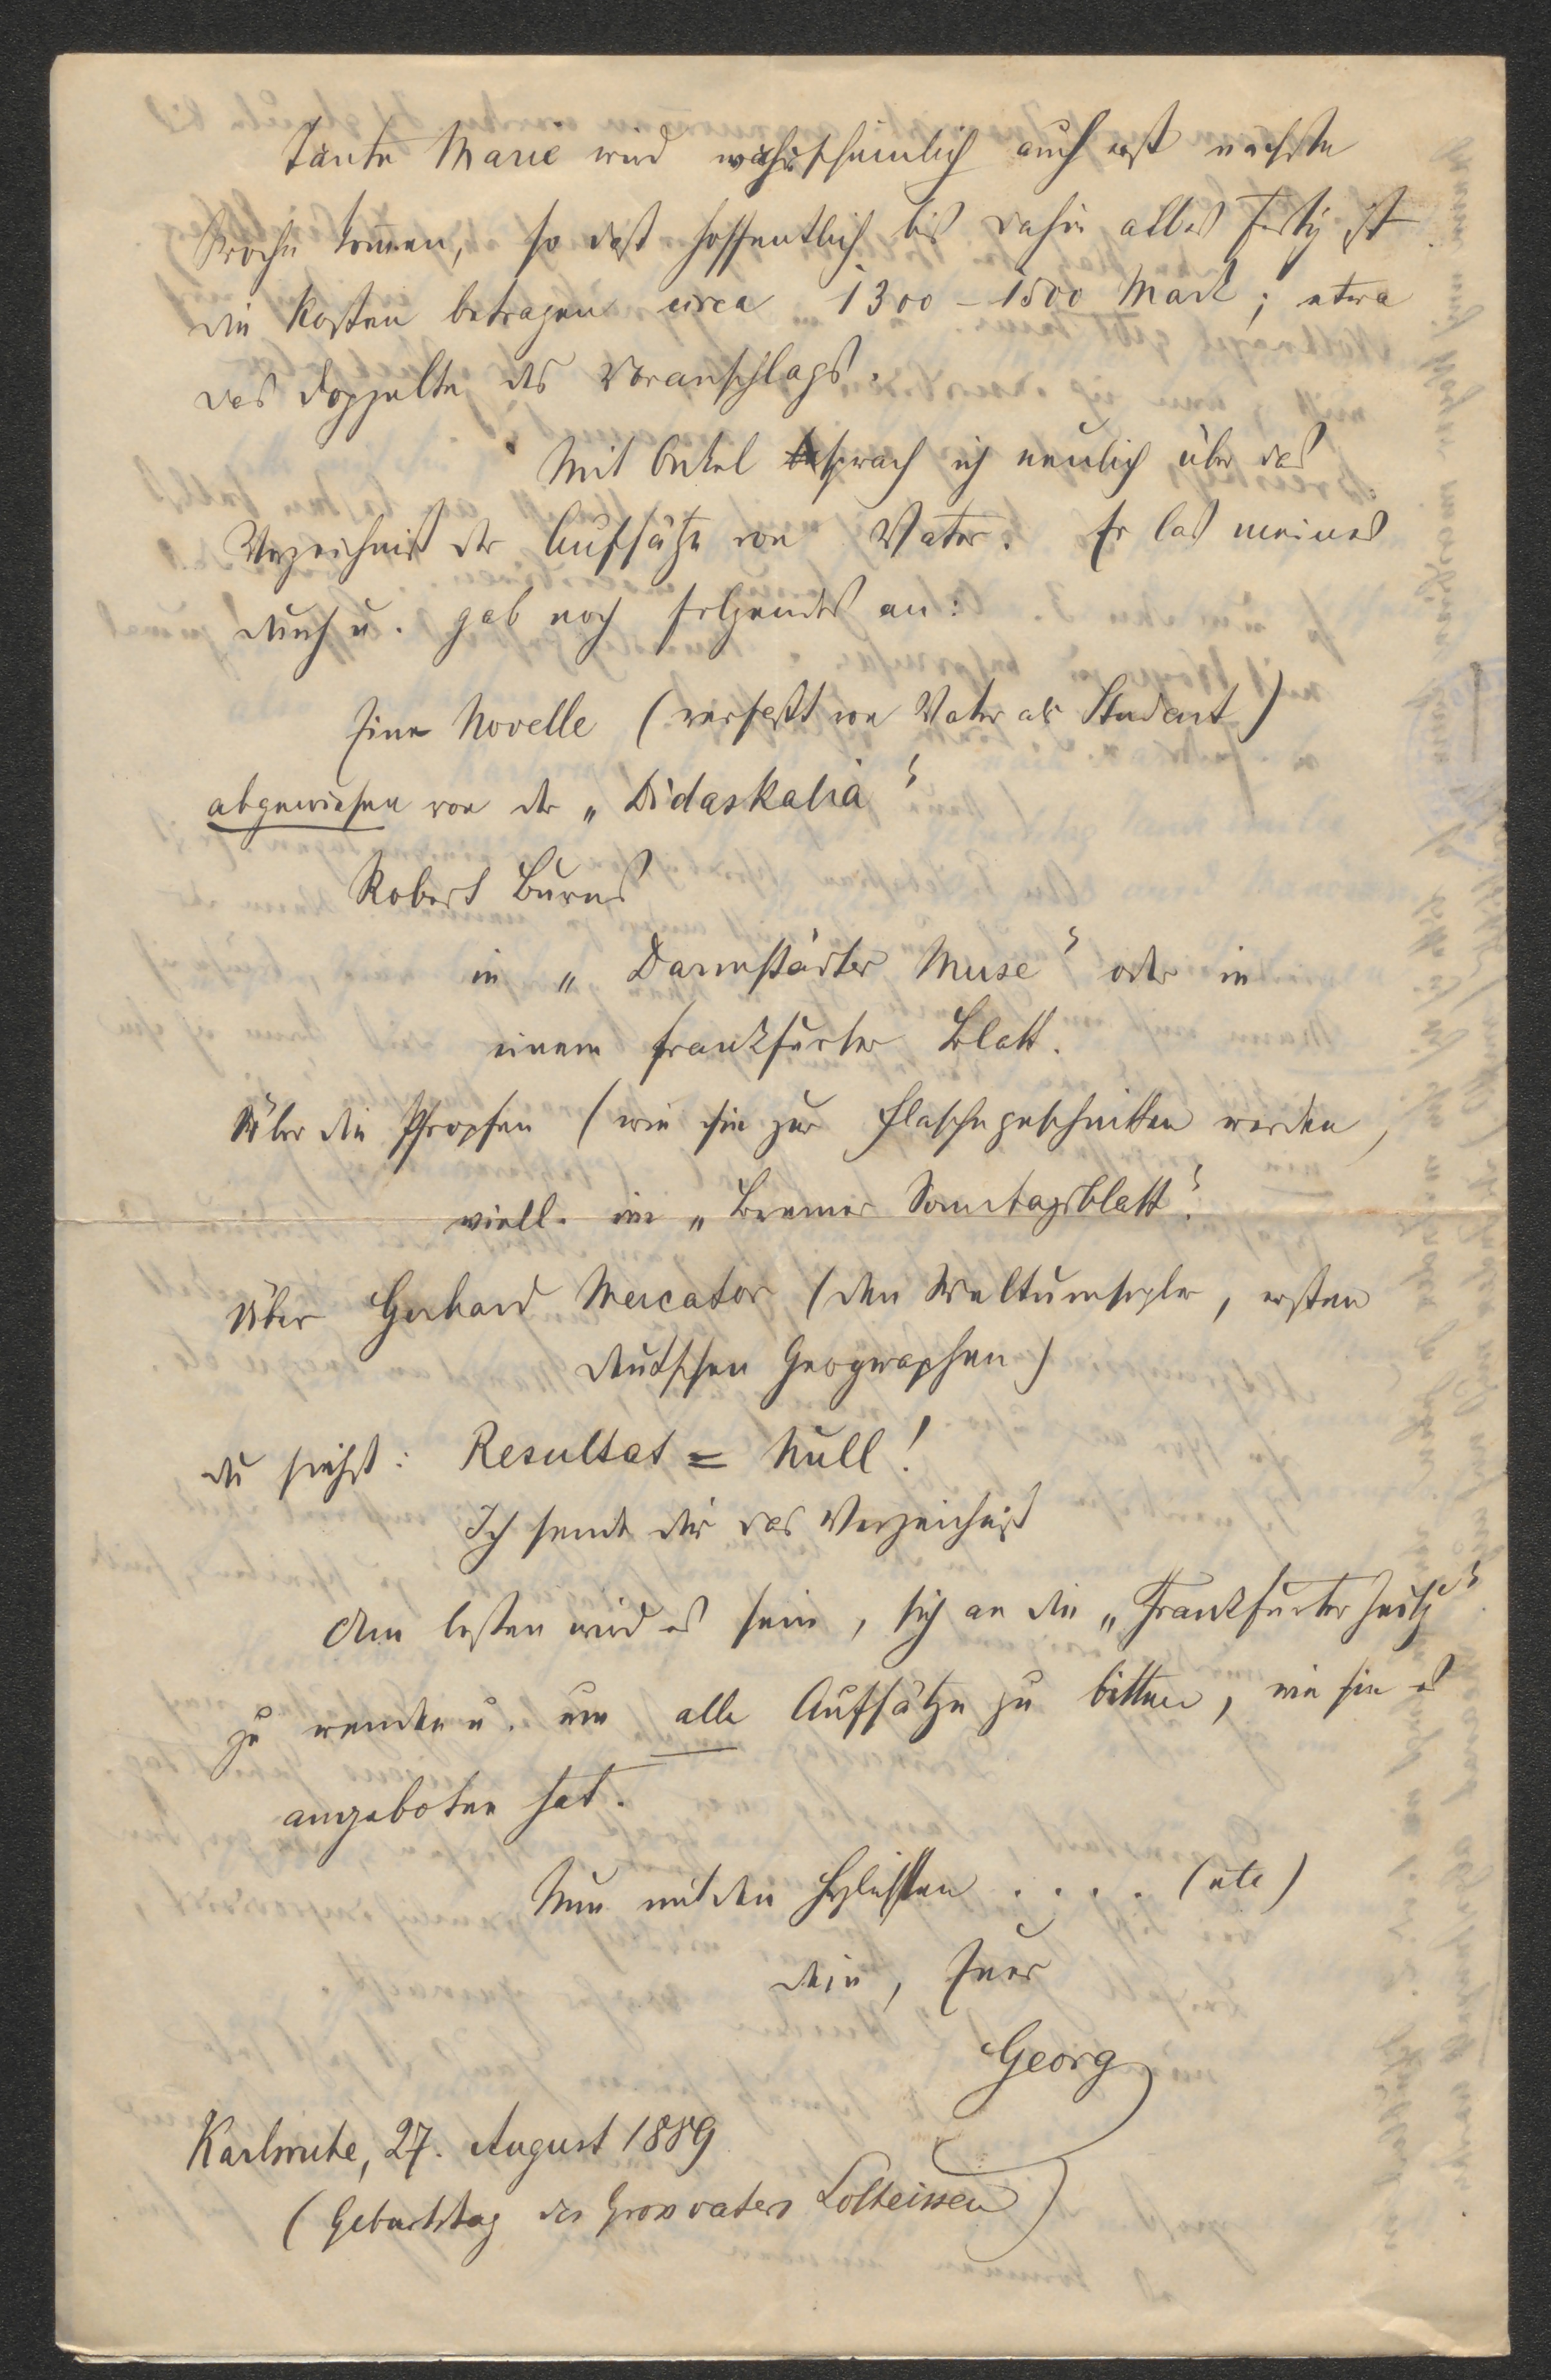 Tante Marie wird wahrscheinlich auch erst nächste
Woche kommen, so daß hoffentlich bis dahin alles fertig ist
die Kosten betragen circa 1300 – 1500 Mark; etwa
das Doppelte des Voranschlags.
Mit Onkel sprach ich neulich über das
Verzeichniß der Aufsätze von Vater. Er las meines
durch u. gab noch folgendes an:
Eine Novelle (verfaßt von Vater als Student)
abgewiesen von der „Didaskalia“
Robert Burns
in „Darmstädter Muse“ oder in
einem Frankfurter Blatt.
Über die Pfropfen (wie sie zur Flasche geschnitten werden,
viell. im „Bremer Sonntagsblatt“.
Über Gerhard Mercator (den Weltumsegler, ersten
deutschen Geographen)
Du siehst: Resultat = Null!
Ich sende dir das Verzeichniß
Am besten wird es sein, sich an die „Frankfurter Zeitg“
zu wenden u. um alle Aufsätze zu bitten, wie sie es
angeboten hat.
Nun mit den herzlichsten . . . . (etc)
Dein, Euer
Georg
Karlsruhe, 27. August 1889
(Geburtstag des Grossvaters Lotheissen)